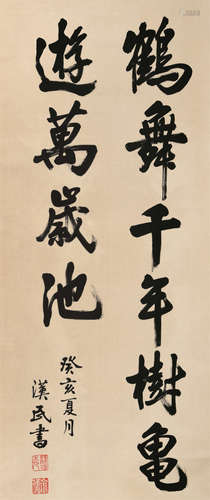 鶴舞千年樹亀
遊萬歳池
癸亥夏月
漢民書